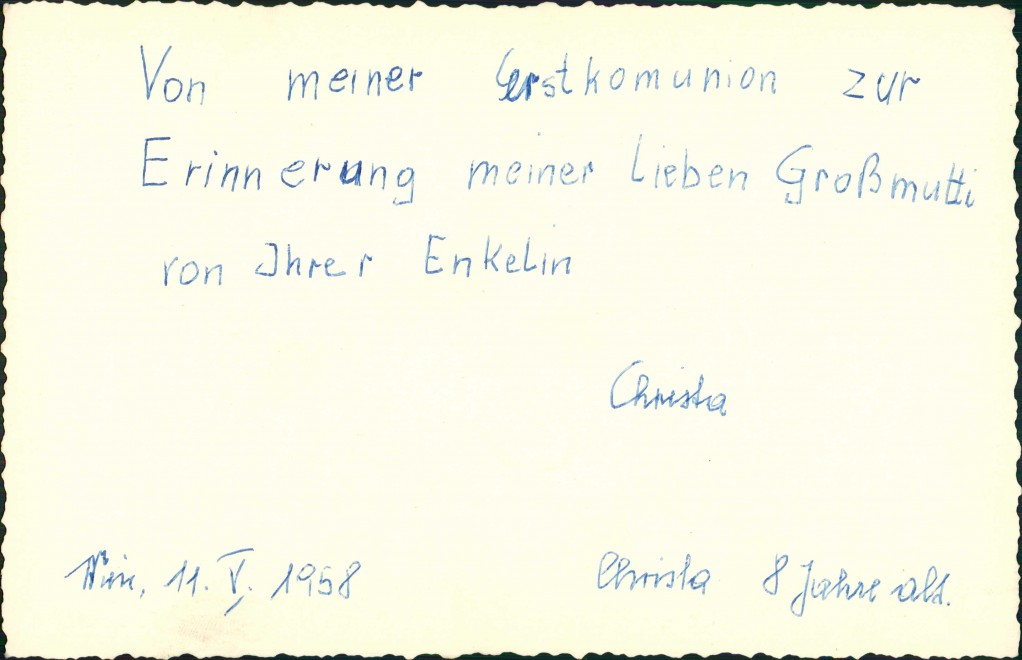 Von meiner Erstkomunion zur
Erinnerung meiner lieben Großmutti
von Ihrer Enkelin
Christa
Wien, 11. V. 1958 Christa 8 Jahre alt.